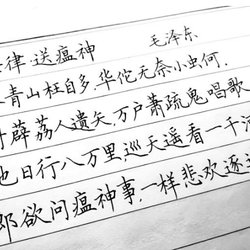 律·送瘟神 毛泽东
青山枉自多,华佗无奈小虫何.
村薜荔人遗矢,万户萧疏鬼唱歌
地日行八万里,巡天遥看一千河
郎欲问瘟神事,一样悲欢逐